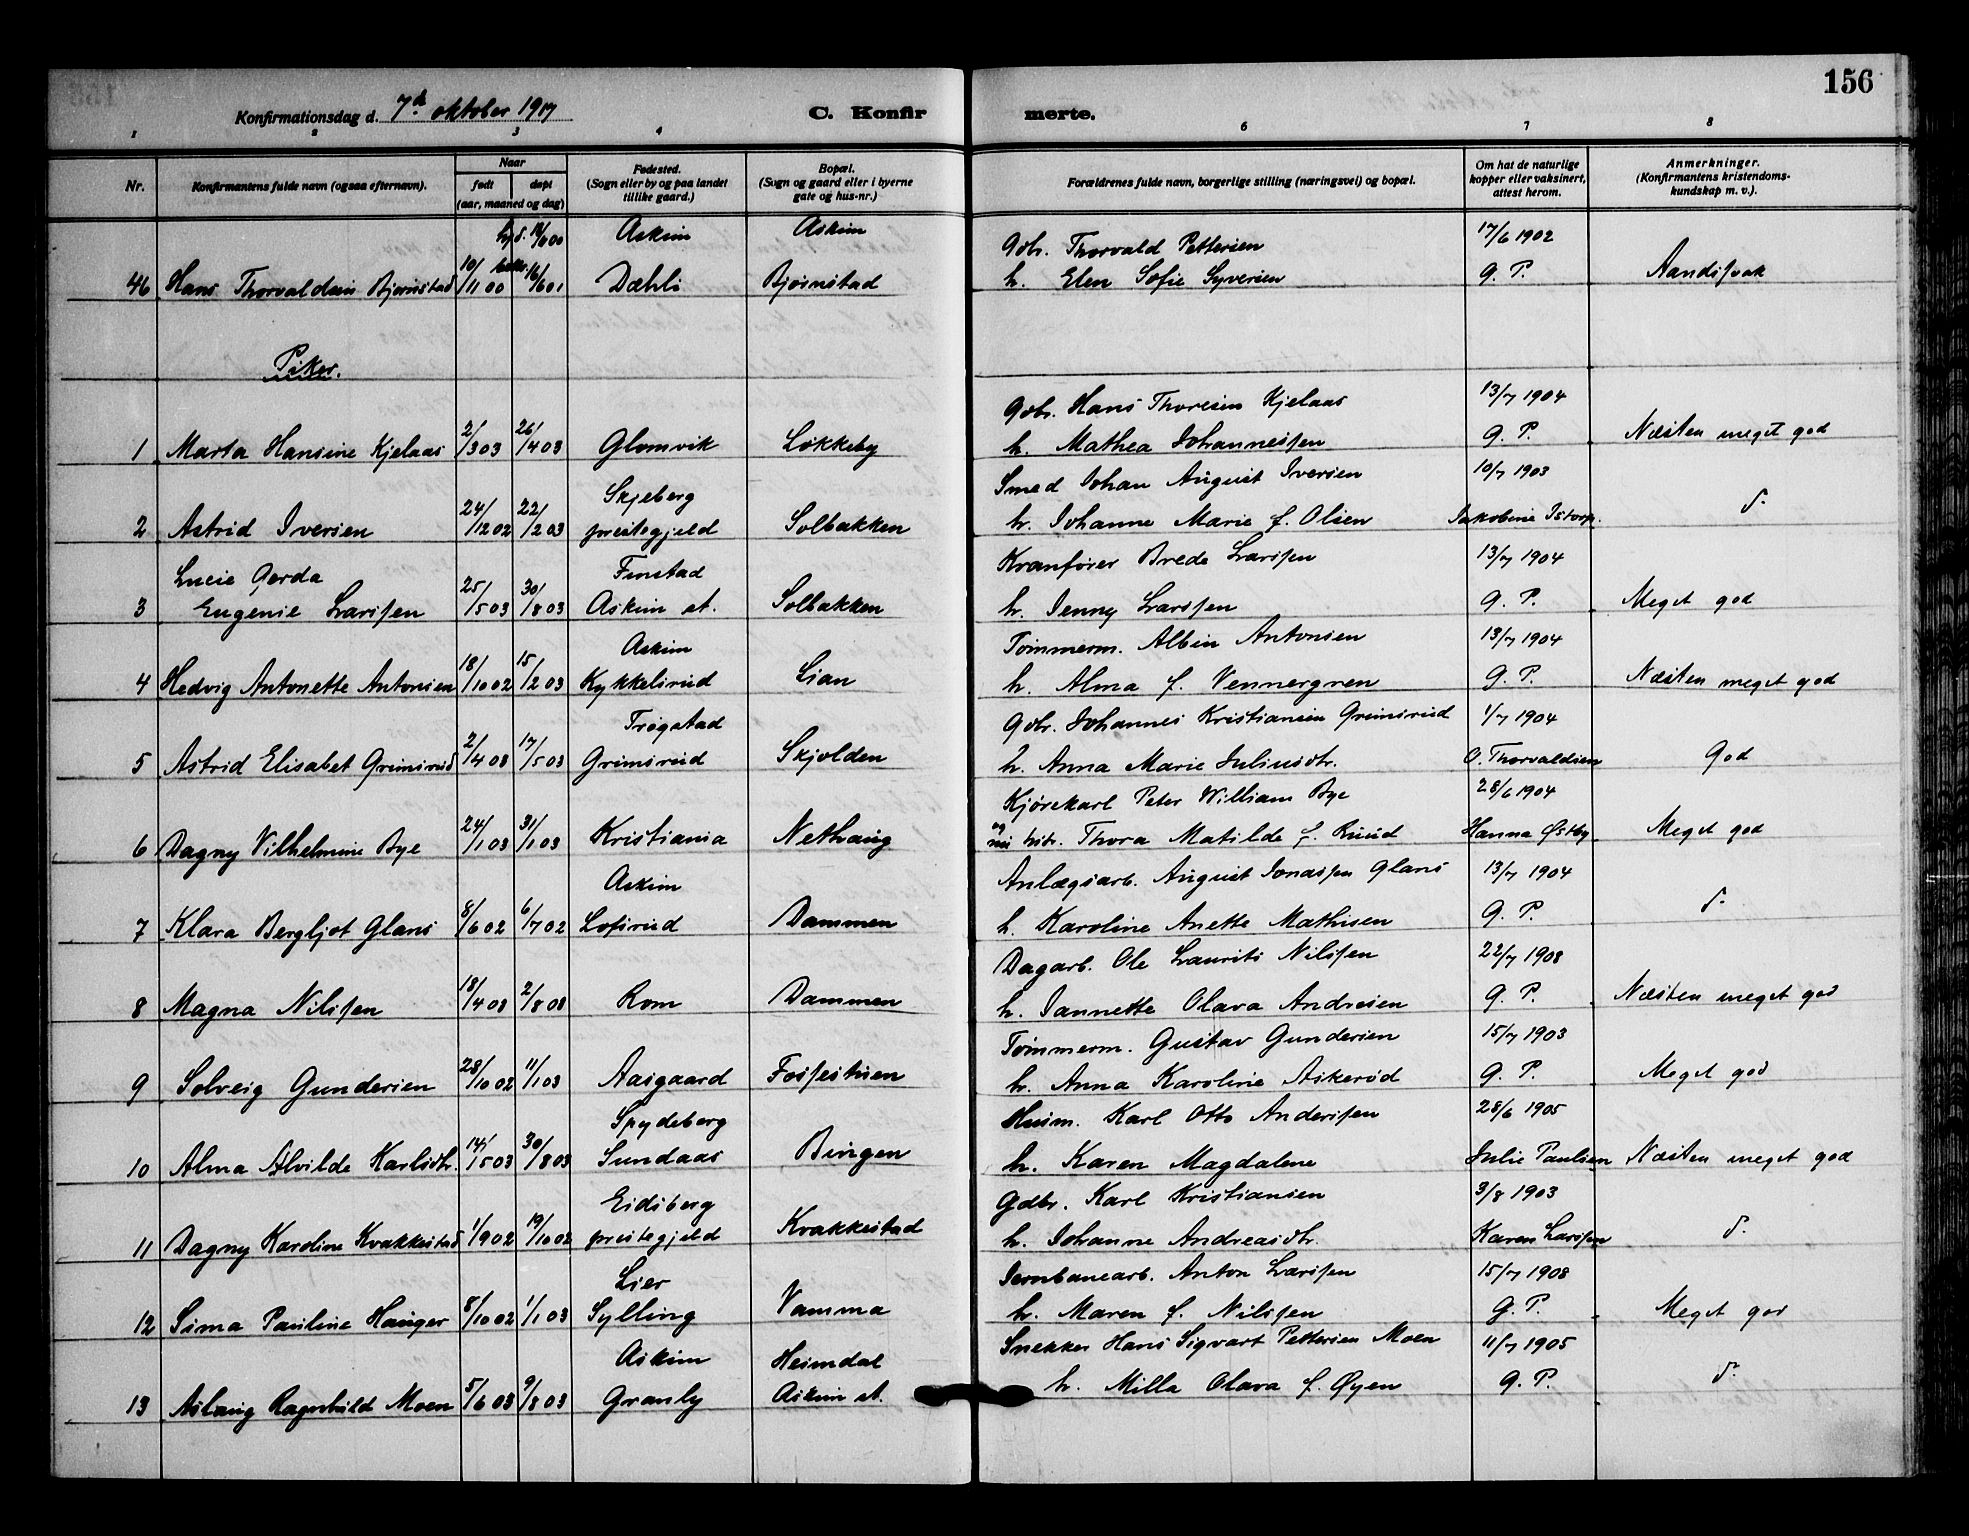 156
Konfirmationsdag d. 7d oktober 1917
C. Konfirmerte.
1 2 3 4 6 7 8
Nr. Konfirmantens fulde navn (ogsaa efternavn). Naar født døpt (aar, maaned og dag) Fødested. (Sogn eller by og paa landet tillike gaard.) Bopæl. (Sogn og gaard eller i byerne gate og hus-nr.) Forældrenes fulde navn, borgerlige stilling (næringsvei) og bopæl. Om hat de naturlige kopper eller vaksinert, attest herom. Anmerkninger. (Konfirmantens kristendomskundskap m. v.).
Askim Askim Gbr. Thorvald Pettersen 17/6 1902
46 Hans Thorvaldsen Bjørnstad 10/11 00 16/6 01 Dæhli Bjørnstad h. Elen Sofie Syversen G. P. Aandssvak
Piker.
Gbr. Hans Thoresen Kjelaas 13/7 1904
1 Marta Hansine Kjelaas 2/3 03 26/4 03 Glomvik Løkkeby h. Mathea Johannessen G. P. Næsten meget god
Skjeberg Smed Johan August Iversen 10/7 1903
2 Astrid Iversen 24/12 02 22/2 03 prestegjeld Solbakken h. Johanne Marie f. Olsen Jakobine Istorp. d.
Lucie Gerda Finstad Kranfører Brede Larssen 13/7 1904
3 Eugenie Larssen 25/5 03 30/8 03 Askim st. Solbakken h. Jenny Larssen G. P. Meget god
Askim Tømmerm. Albin Antonsen 13/7 1904
4 Hedvig Antonette Antonsen 18/10 02 15/2 03 Kykkelsrud Lian h. Alma f. Vennergren G. P. Næsten meget god
Trøgstad Gbr. Johannes Kristiansen Grimsrud 1/7 1904
5 Astrid Elisabet Grimsrud 2/4 03 17/5 03 Grimsrud Skjolden h. Anna Marie Juliusdtr. O. Thorvaldsen God
Kjørekarl Peter William Bye 28/6 1904
6 Dagny Vilhelmine Bye 24/1 03 31/1 03 Kristiania Nethaug og hstr. Thora Matilde f. Ruud Hanna Østby. Meget god
Askim Anlægsarb. August Jonassen Glans 13/7 1904
7 Klara Bergljot Glans 8/6 02 6/7 02 Løfsrud Dammen h. Karoline Anette Mathisen G. P. d.
Dagarb. Ole Laurits Nilssen 22/7 1908
8 Magna Nilssen 18/4 03 2/8 03 Rom Dammen h. Jannette Olava Andresen G. P. Næsten meget god
Tømmerm. Gustav Gundersen 15/7 1903
9 Solveig Gundersen 28/10 02 11/1 03 Aasgaard Fossestuen h. Anna Karoline Askerød G. P. Meget god
Spydeberg Husm. Karl Otto Anderssen 28/6 1905
10 Alma Alvilde Karlsdtr. 14/5 03 30/8 03 Sundaas Bingen h. Karen Magdalene Julie Paulsen Næsten meget god
Eidsberg Gdbr. Karl Kristiansen 3/8 1903
11 Dagny Karoline Kvakkestad 1/9 02 19/10 02 prestegjeld Kvakkestad h. Johanne Andreasdtr. Karen Larssen d.
Lier Jernbanearb. Anton Larssen 15/7 1908
12 Signa Pauline Hauger 8/10 02 1/1 03 Sylling Vamma h. Maren f. Nilssen G. P. Meget god
Askim Heimdal Snekker Hans Sigvart Pettersen Moen 11/7 1905
13 Aslaug Ragnhild Moen 5/6 03 9/8 03 Granly Askim st. h. Milla Olava f. Øyen G. P. d.